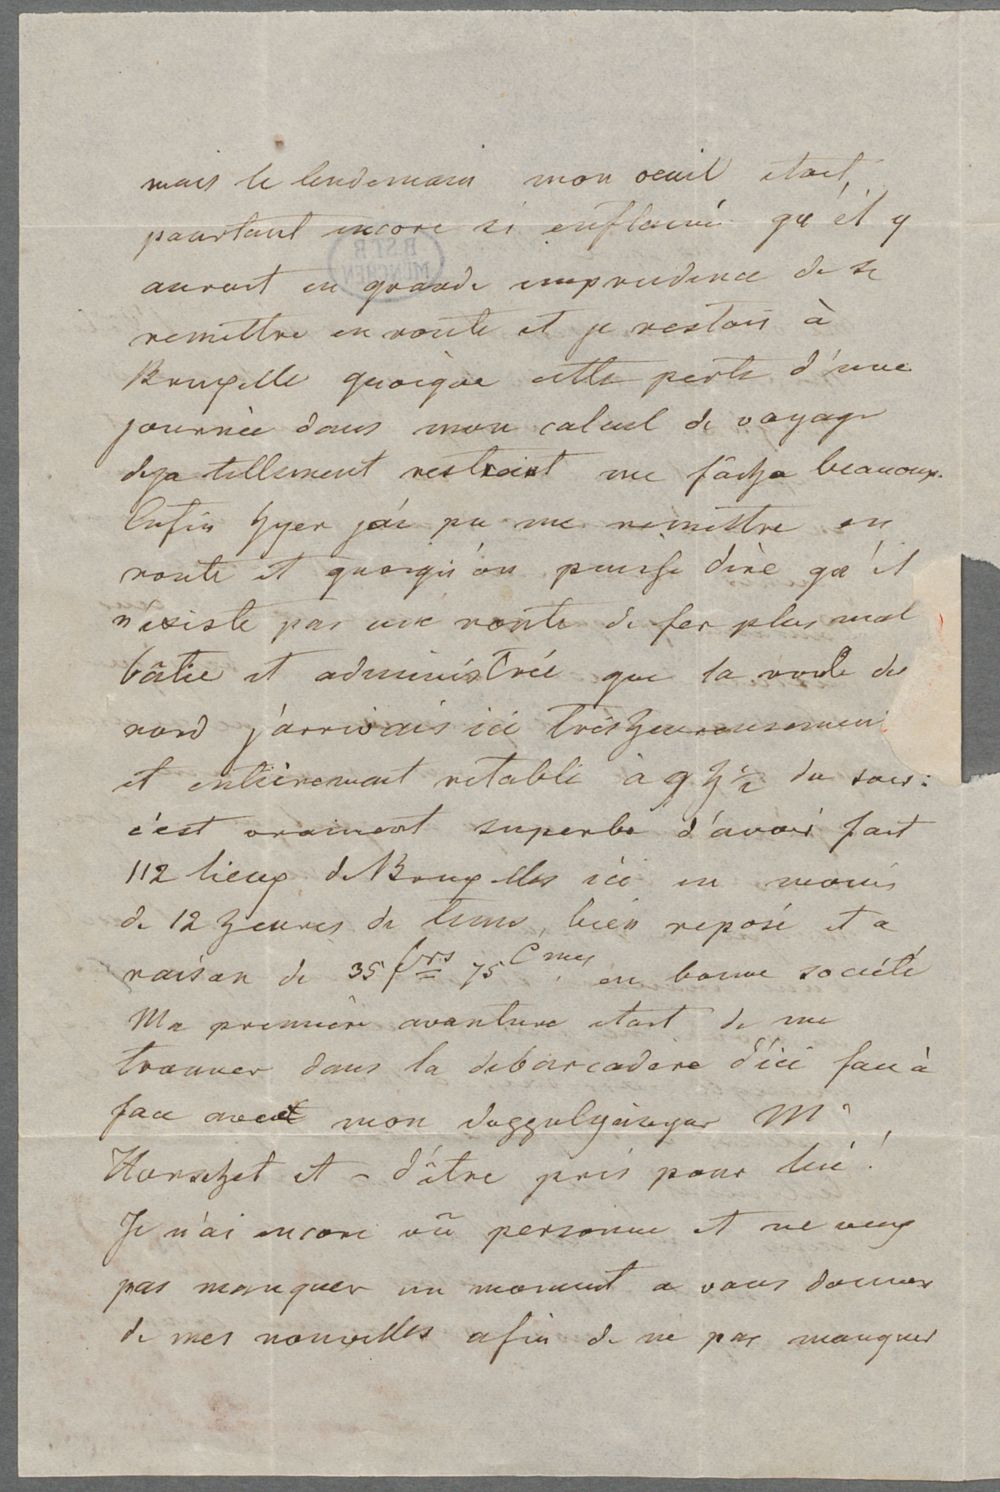 mais le lendemain mon oeuil etait
pourtant encore si enflamé qu'il y
auroit eu grande imprudence de se
remettre en route et je restois à
Bruxelle quoique cette perte d'une
journée dans mon calcul de voyage
deja tellement restraint me fâcha beaucoup.
Enfin hyer j'ai pu me remettre en
route et quoiqu'on puisse dire qu'il
n'existe pas une route de fer plus mal
bâtie et administrée que la route du
nord j'arrivais ici très heureusement
et entièrement retabli à 9 h ½ du soir:
c'est vraiment superbe d'avoir fait
112 lieux de Bruxelles ici en moins
de 12 heures de tems, bien reposé et a
raison de 35 frs 75 Cmes en bonne société
Ma première avanture etait de me
trouver dans la debarcadère d'ici face à
face avect mon doppelgänger Mr
Horschet et – d'être pris pour lui!
Je n'ai encore vû personne et ne veux
pas manquer un moment a vous donner
de mes nouvelles afin de ne pas manquer
BSTB
MÜNCHEN